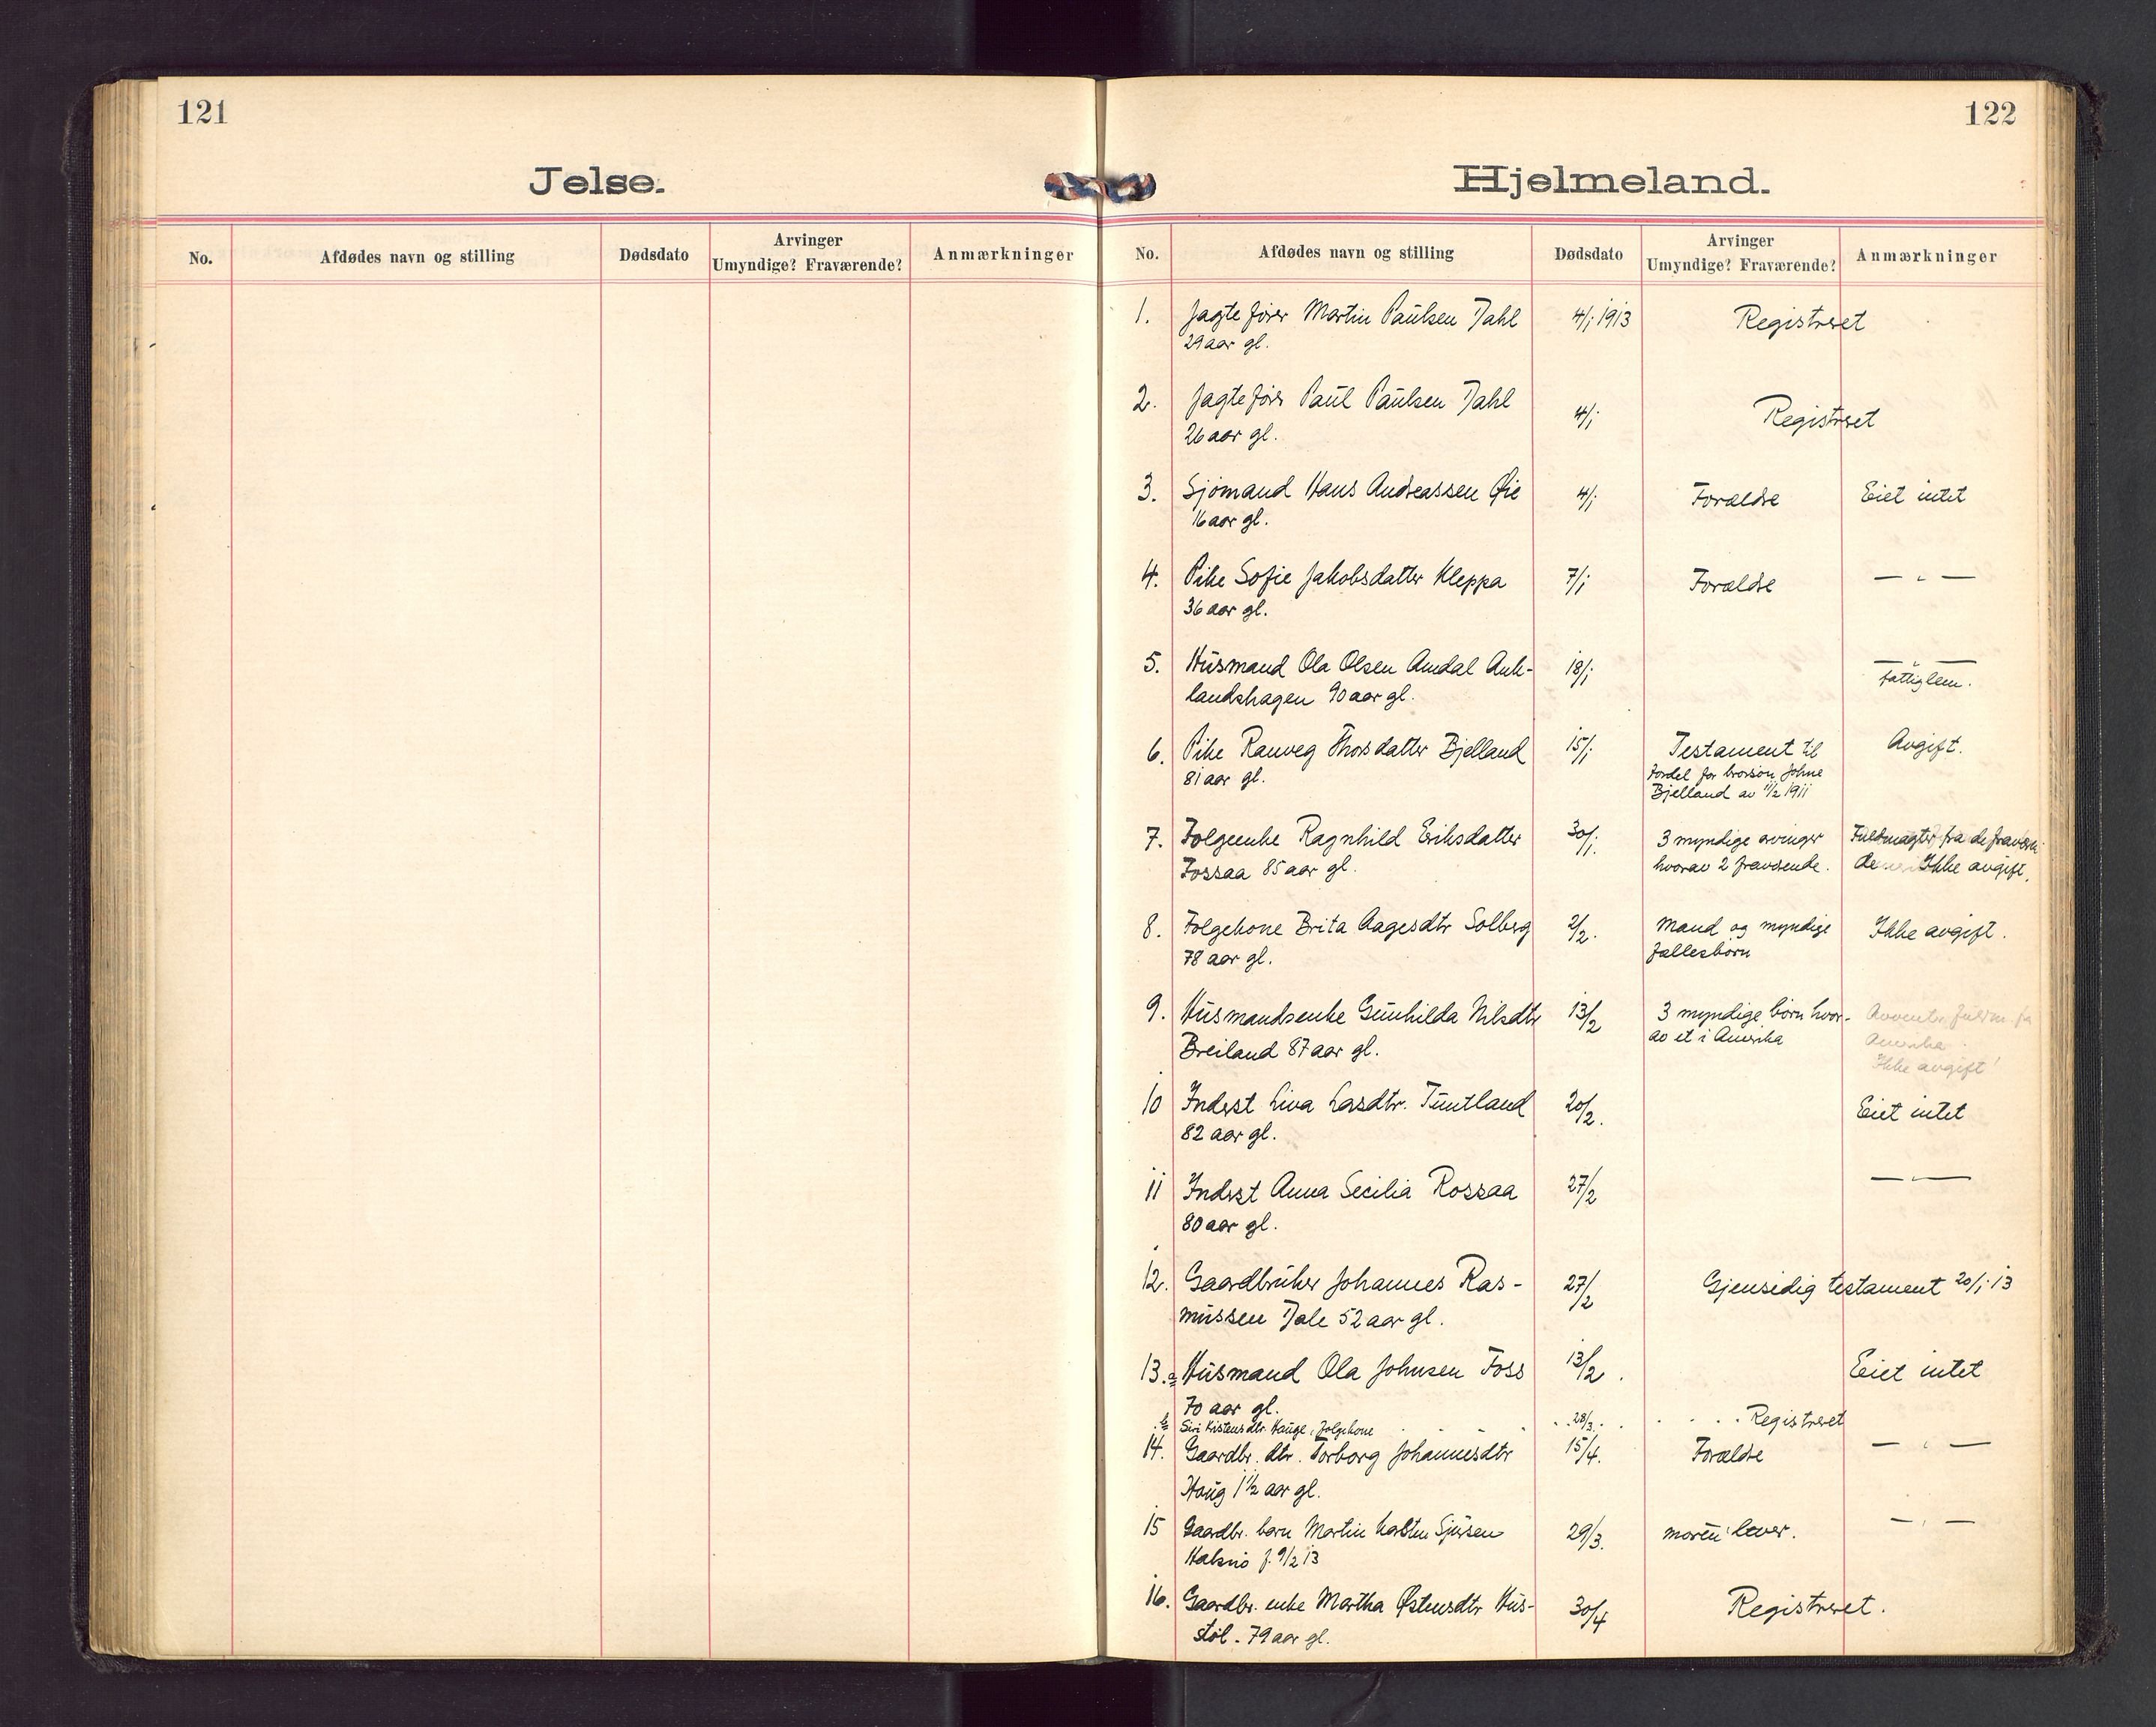 121
Jelse.
No.
Afdødes navn og stilling
Dødsdato
Arvinger
Umyndige? Fraværende?
Anmærkninger
122
Hjelmeland.
No.
Afdødes navn og stilling
Dødsdato
Arvinger
Umyndige? Fraværende?
Anmærkninger
1. Jagtefører Martin Paulsen Dahl 4/1 1913 Registreret
29 aar gl.
2. Jagtefører Paul Paulsen Dahl 4/1 Registreret
26 aar gl.
3. Sjømand Hans Andreassen Øie 4/1 Forældre Eiet intet
16 aar gl.
4. Pike Sofie Jakobsdatter Kleppa 7/1 Forældre — " —
36 aar gl.
5. Husmand Ola Olsen Amdal Ank- 18/1 — " —
landshagen 90 aar gl. Fattiglem.
6. Pike Ranveg Thorsdatter Bjelland 15/1 Testament til Avgift.
81 aar gl. fordel for brorsøn Johne
Bjelland av 11/2 1911
7. Folgeenke Ragnhild Eriksdatter 30/1. 3 myndige arvinger Fuldmagter fra de fraværen
Fossaa 85 aar gl. hvorav 2 fraværende. de Ikke avgift.
8. Folgekone Brita Aagesdtr Solberg 2/2. Mand og myndige Ikke avgift.
78 aar gl. fællesbørn
9. Husmandsenke Gunhilda Nilsdtr 13/2 3 myndige børn hvor- Avventer fuldm. fra
Breiland 87 aar gl. av et i Amerika Amerika
Ikke avgift!
10 Inderst Liva Larsdtr. Tuntland 20/2. Eiet intet
82 aar gl.
11 Inderst Anna Secilia Rossaa 27/2 — " —
80 aar gl.
12. Gaardbruker Johannes Ras- 27/2 Gjensidig testament 20/1 13
mussen Dale 52 aar gl.
13. a Husmand Ola Johnsen Foss 13/2. Eiet intet
70 aar gl.
b Siri Kistensdtr Hauge, Folgekone 28/3. Registreret
14. Gaardbr. dtr. Torborg Johannesdtr 15/4. Forældre — " —
Haug 1 1/2 aar gl.
15 Gaardbr. barn Martin Sjursen 29/3. moren lever. — " —
Halsnø f. 9/2 13
16. Gaardbr. enke Martha Østensdtr Hus- 30/4 Registreret.
støl. 79 aar gl.